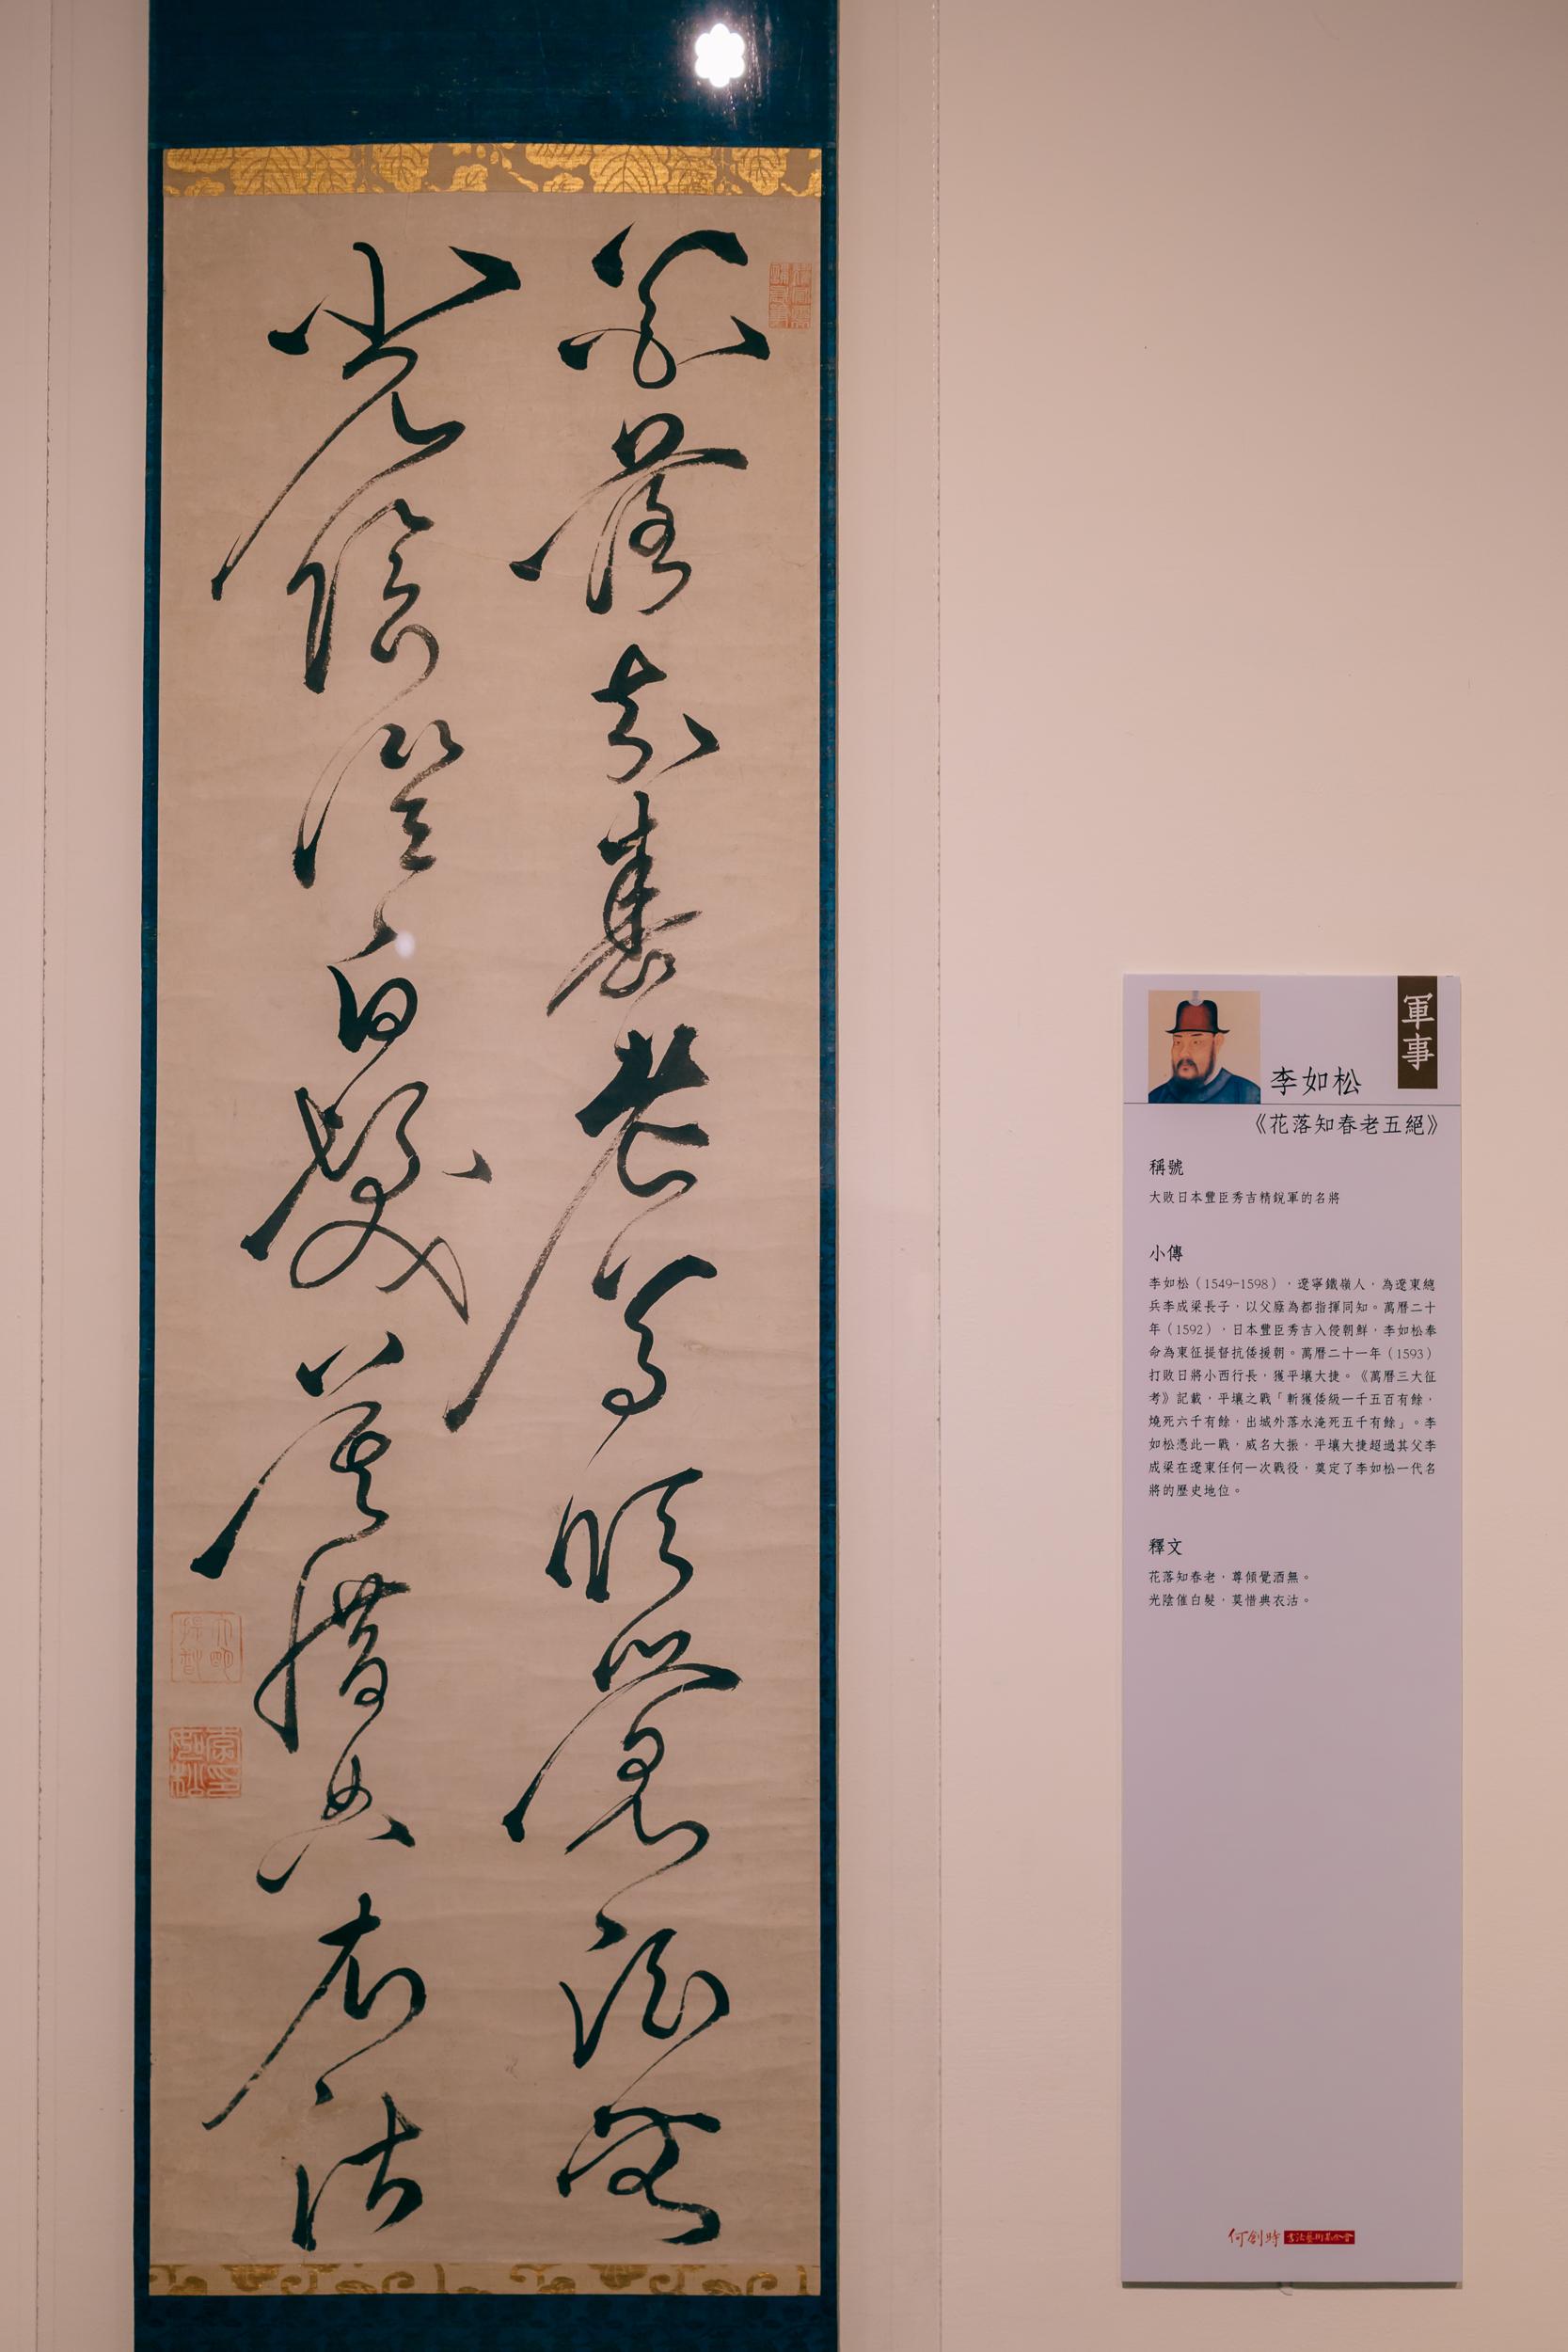 花落知春老尊傾覺酒無
光陰催白髮莫惜典衣沽
李如松印
軍事
李如松
《花落知春老五絕》
稱號
大敗日本豐臣秀吉精銳軍的名將
小傳
李如松（1549-1598），遼寧鐵嶺人，為遼東總
兵李成梁長子，以父廕為都指揮同知。萬曆二十
年（1592），日本豐臣秀吉入侵朝鮮，李如松奉
命為東征提督抗倭援朝。萬曆二十一年（1593）
打敗日將小西行長，獲平壤大捷。《萬曆三大征
考》記載，平壤之戰「斬獲倭級一千五百有餘，
燒死六千有餘，出城外落水淹死五千有餘」。李
如松憑此一戰，威名大振，平壤大捷超過其父李
成梁在遼東任何一次戰役，奠定了李如松一代名
將的歷史地位。
釋文
花落知春老，尊傾覺酒無。
光陰催白髮，莫惜典衣沽。
何創時書法藝術基金會